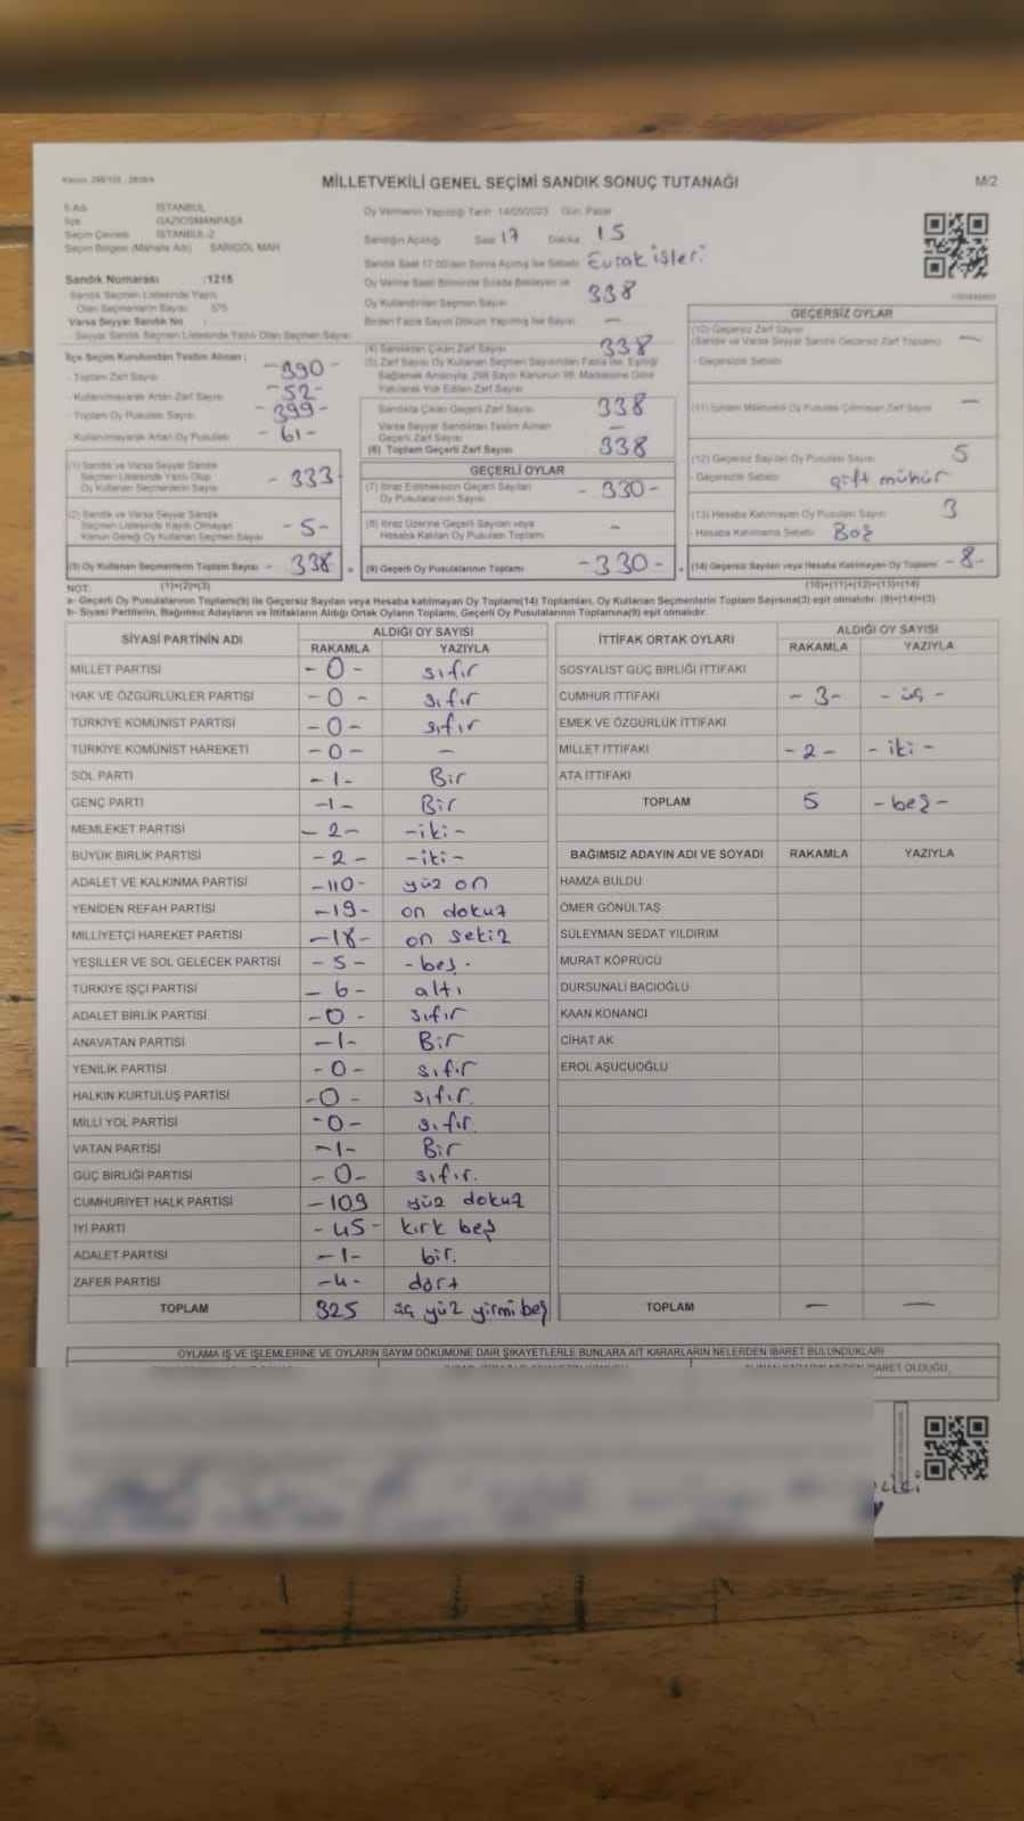 MİLLETVEKİLİ GENEL SEÇİMİ SANDIK SONUÇ TUTANAĞI
M/2
İl Adı İSTANBUL
İlçe GAZİOSMANPAŞA
Seçim Çevresi İSTANBUL-2
Seçim Bölgesi (Mahalle Adı) SARIGÖL MAH
Sandık Numarası :1215
Sandık Seçmen Listesinde Yazılı
Olan Seçmenlerin Sayısı 375
Varsa Seyyar Sandık No
Seyyar Sandık Seçmen Listesinde Yazılı Olan Seçmen Sayısı
Oy Vermenin Yapıldığı Tarih 14/05/2023 Gün Pazar
Sandığın Açıldığı Saat 17 Dakika 15
Evrak işleri
338
Oy Kullandırılan Seçmen Sayısı
Birden Fazla Sayım Döküm Yapılmış İse Sayısı —
İlçe Seçim Kurulundan Teslim Alınan ;
- Toplam Zarf Sayısı -390-
- Kullanılmayarak Artan Zarf Sayısı -52-
- Toplam Oy Pusulası Sayısı -399-
- Kullanılmayarak Artan Oy Pusulası -61-
(1) Sandık ve Varsa Seyyar Sandık
Seçmen Listesinde Yazılı Olup
Oy Kullanan Seçmenlerin Sayısı - 333
(2) Sandık ve Varsa Seyyar Sandık
Seçmen Listesinde Kayıtlı Olmayan
Kanun Gereği Oy Kullanan Seçmen Sayısı -5-
(3) Oy Kullanan Seçmenlerin Toplam Sayısı - 338
(4) Sandıktan Çıkan Zarf Sayısı 338
Sandıkta Çıkan Geçerli Zarf Sayısı 338
Varsa Seyyar Sandıktan Teslim Alınan
Geçerli Zarf Sayısı —
(6) Toplam Geçerli Zarf Sayısı 338
GEÇERLİ OYLAR
(7) İtiraz Edilmeksizin Geçerli Sayılan
Oy Pusulalarının Sayısı - 330-
(8) İtiraz Üzerine Geçerli Sayılan veya
Hesaba Katılan Oy Pusulası Toplamı -
(9) Geçerli Oy Pusulalarının Toplamı -330-
GEÇERSİZ OYLAR
(10) Geçersiz Zarf Sayısı
(Sandık ve Varsa Seyyar Sandık Geçersiz Zarf Toplamı) —
- Geçersizlik Sebebi
—
(12) Geçersiz Sayılan Oy Pusulası Sayısı 5
- Geçersizlik Sebebi çift mühür
(13) Hesaba Katılmayan Oy Pusulası Sayısı 3
- Hesaba Katılmama Sebebi Boş
(14) Geçersiz Sayılan veya Hesaba Katılmayan Oy Toplamı -8-
NOT: (1)+(2)=(3) (10)+(11)+(12)+(13)=(14)
a- Geçerli Oy Pusulalarının Toplamı(9) ile Geçersiz Sayılan veya Hesaba katılmayan Oy Toplamı(14) Toplamları, Oy Kullanan Seçmenlerin Toplam Sayısına(3) eşit olmalıdır. (9)+(14)=(3)
b- Siyasi Partilerin, Bağımsız Adayların ve İttifakların Aldığı Ortak Oyların Toplamı, Geçerli Oy Pusulalarının Toplamına(9) eşit olmalıdır.
SİYASİ PARTİNİN ADI ALDIĞI OY SAYISI
RAKAMLA YAZIYLA
MİLLET PARTİSİ -0- sıfır
HAK VE ÖZGÜRLÜKLER PARTİSİ -0- sıfır
TÜRKİYE KOMÜNİST PARTİSİ -0- sıfır
TÜRKİYE KOMÜNİST HAREKETİ -0- —
SOL PARTİ -1- Bir
GENÇ PARTİ -1- Bir
MEMLEKET PARTİSİ -2- -iki-
BÜYÜK BİRLİK PARTİSİ -2- -iki-
ADALET VE KALKINMA PARTİSİ -110- yüz on
YENİDEN REFAH PARTİSİ -19- on dokuz
MİLLİYETÇİ HAREKET PARTİSİ -18- on sekiz
YEŞİLLER VE SOL GELECEK PARTİSİ -5- -beş-
TÜRKİYE İŞÇİ PARTİSİ -6- altı
ADALET BİRLİK PARTİSİ -0- sıfır
ANAVATAN PARTİSİ -1- Bir
YENİLİK PARTİSİ -0- sıfır
HALKIN KURTULUŞ PARTİSİ -0- sıfır.
MİLLİ YOL PARTİSİ -0- sıfır.
VATAN PARTİSİ -1- Bir
GÜÇ BİRLİĞİ PARTİSİ -0- sıfır.
CUMHURİYET HALK PARTİSİ -109 yüz dokuz
İYİ PARTİ -45- kırk beş
ADALET PARTİSİ -1- bir.
ZAFER PARTİSİ -4- dört
TOPLAM 325 üç yüz yirmi beş
İTTİFAK ORTAK OYLARI ALDIĞI OY SAYISI
RAKAMLA YAZIYLA
SOSYALİST GÜÇ BİRLİĞİ İTTİFAKI
CUMHUR İTTİFAKI -3- -üç-
EMEK VE ÖZGÜRLÜK İTTİFAKI
MİLLET İTTİFAKI -2- -iki-
ATA İTTİFAKI
TOPLAM 5 -beş-
BAĞIMSIZ ADAYIN ADI VE SOYADI RAKAMLA YAZIYLA
HAMZA BULDU
ÖMER GÖNÜLTAŞ
SÜLEYMAN SEDAT YILDIRIM
MURAT KÖPRÜCÜ
DURSUNALİ BACIOĞLU
KAAN KONANCI
CİHAT AK
EROL AŞUCUOĞLU
TOPLAM — —
OYLAMA İŞ VE İŞLEMLERİNE VE OYLARIN SAYIM DÖKÜMÜNE DAİR ŞİKAYETLERLE BUNLARA AİT KARARLARIN NELERDEN İBARET BULUNDUKLARI